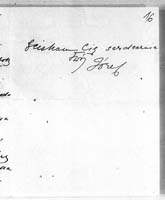 16
Ściskam Cię serdecznie
Twój
Józef